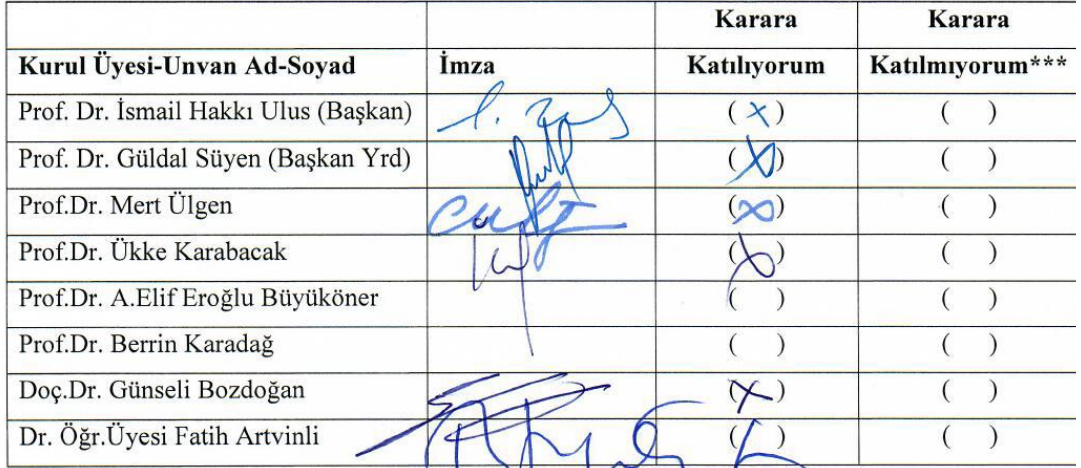 Karara Karara
Kurul Üyesi-Unvan Ad-Soyad İmza Katılıyorum Katılmıyorum***
Prof. Dr. İsmail Hakkı Ulus (Başkan) (x) ( )
Prof. Dr. Güldal Süyen (Başkan Yrd) (x) ( )
Prof.Dr. Mert Ülgen (x) ( )
Prof.Dr. Ükke Karabacak (x) ( )
Prof.Dr. A.Elif Eroğlu Büyüköner ( ) ( )
Prof.Dr. Berrin Karadağ ( ) ( )
Doç.Dr. Günseli Bozdoğan (x) ( )
Dr. Öğr.Üyesi Fatih Artvinli ( ) ( )